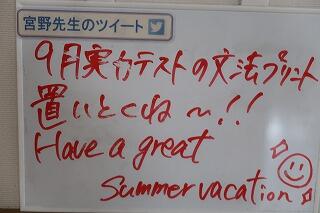 宮野先生のツイート
9月実力テストの文法プリント
置いとくね〜!!
Have a great
Summer vacation